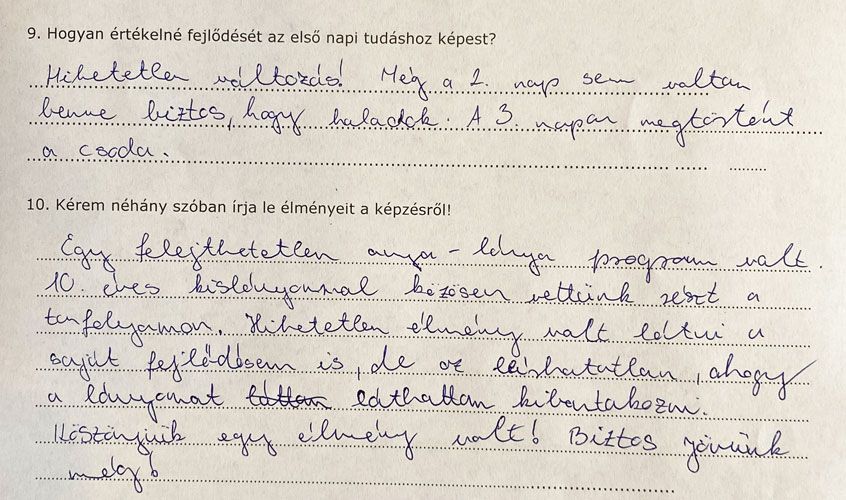 9. Hogyan értékelné fejlődését az első napi tudáshoz képest?
Hihetetlen változás! Még a 2. nap sem voltam
benne biztos, hogy haladok. A 3. napon megtörtént
a csoda.
10. Kérem néhány szóban írja le élményeit a képzésről!
Egy felejthetetlen anya - lánya program volt.
10. éves kislányommal közösen vettünk részt a
tanfolyamon. Hihetetlen élmény volt látni a
saját fejlődésem is, de az leírhatatlan, ahogy
a lányomat láttam láthattam kibontakozni.
Köszönjük egy élmény volt! Biztos jövünk
még!